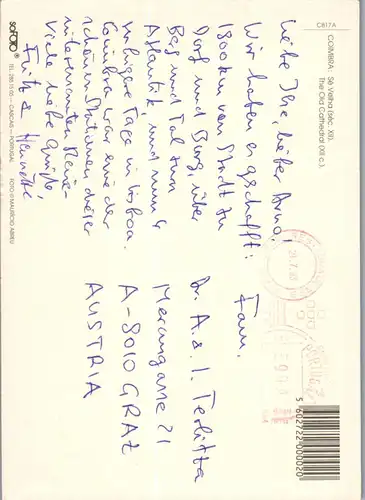 C817A
COIMBRA - Sé Velha (séc. XII).
The Old Cathedral (XII c.).
Liebe Ilse, lieber Arno,
Wir haben es geschafft:
1800 km von Stadt zu
Dorf und Burg, über
Berg und Tal zum
Atlantik, und nun 4
ruhigere Tage in Lisboa.
Coimbra war eine der
schönen Stationen dieser
interessanten Reise.
Viele liebe Grüße
Fritz & Henriette
Fam.
Dr. A. & I. Terlitza
Merangasse 21
A-8010 GRAZ
AUSTRIA
5602722000020
TEL. 285 15 05 - CASCAIS - PORTUGAL
FOTO © MAURÍCIO ABREU